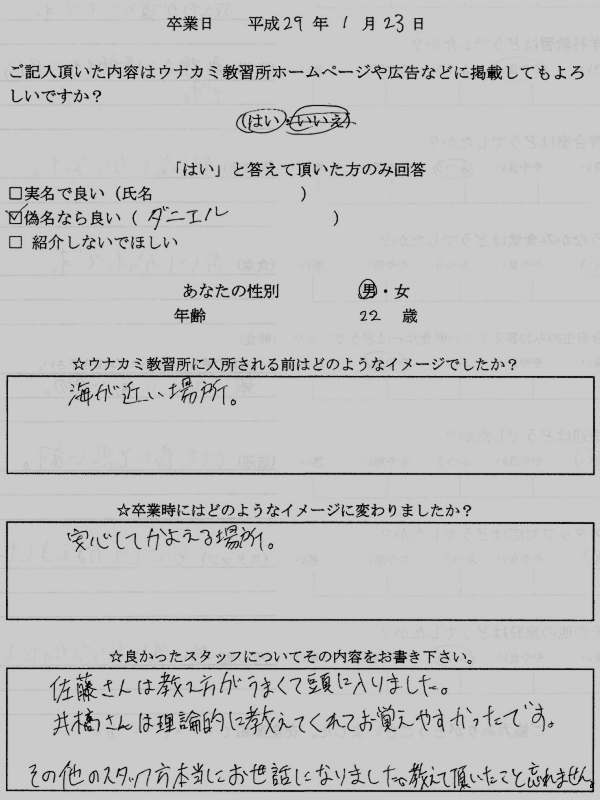 卒業日　平成29年 1月23日
ご記入頂いた内容はウナカミ教習所ホームページや広告などに掲載してもよろ
しいですか？
(はい・いいえ)
「はい」と答えて頂いた方のみ回答
□実名で良い（氏名　　　　　　　　　）
☑偽名なら良い（ ダニエル　　　　　）
□ 紹介しないでほしい
あなたの性別　　男・女
年齢　　22 歳
☆ウナカミ教習所に入所される前はどのようなイメージでしたか？
海が近い場所。
☆卒業時にはどのようなイメージに変わりましたか？
安心してかよえる場所。
☆良かったスタッフについてその内容をお書き下さい。
佐藤さんは教え方がうまくて頭に入りました。
井橋さんは理論的に教えてくれてお覚えやすかったです。
その他のスタッフ方本当にお世話になりました。教えて頂いたこと忘れません。